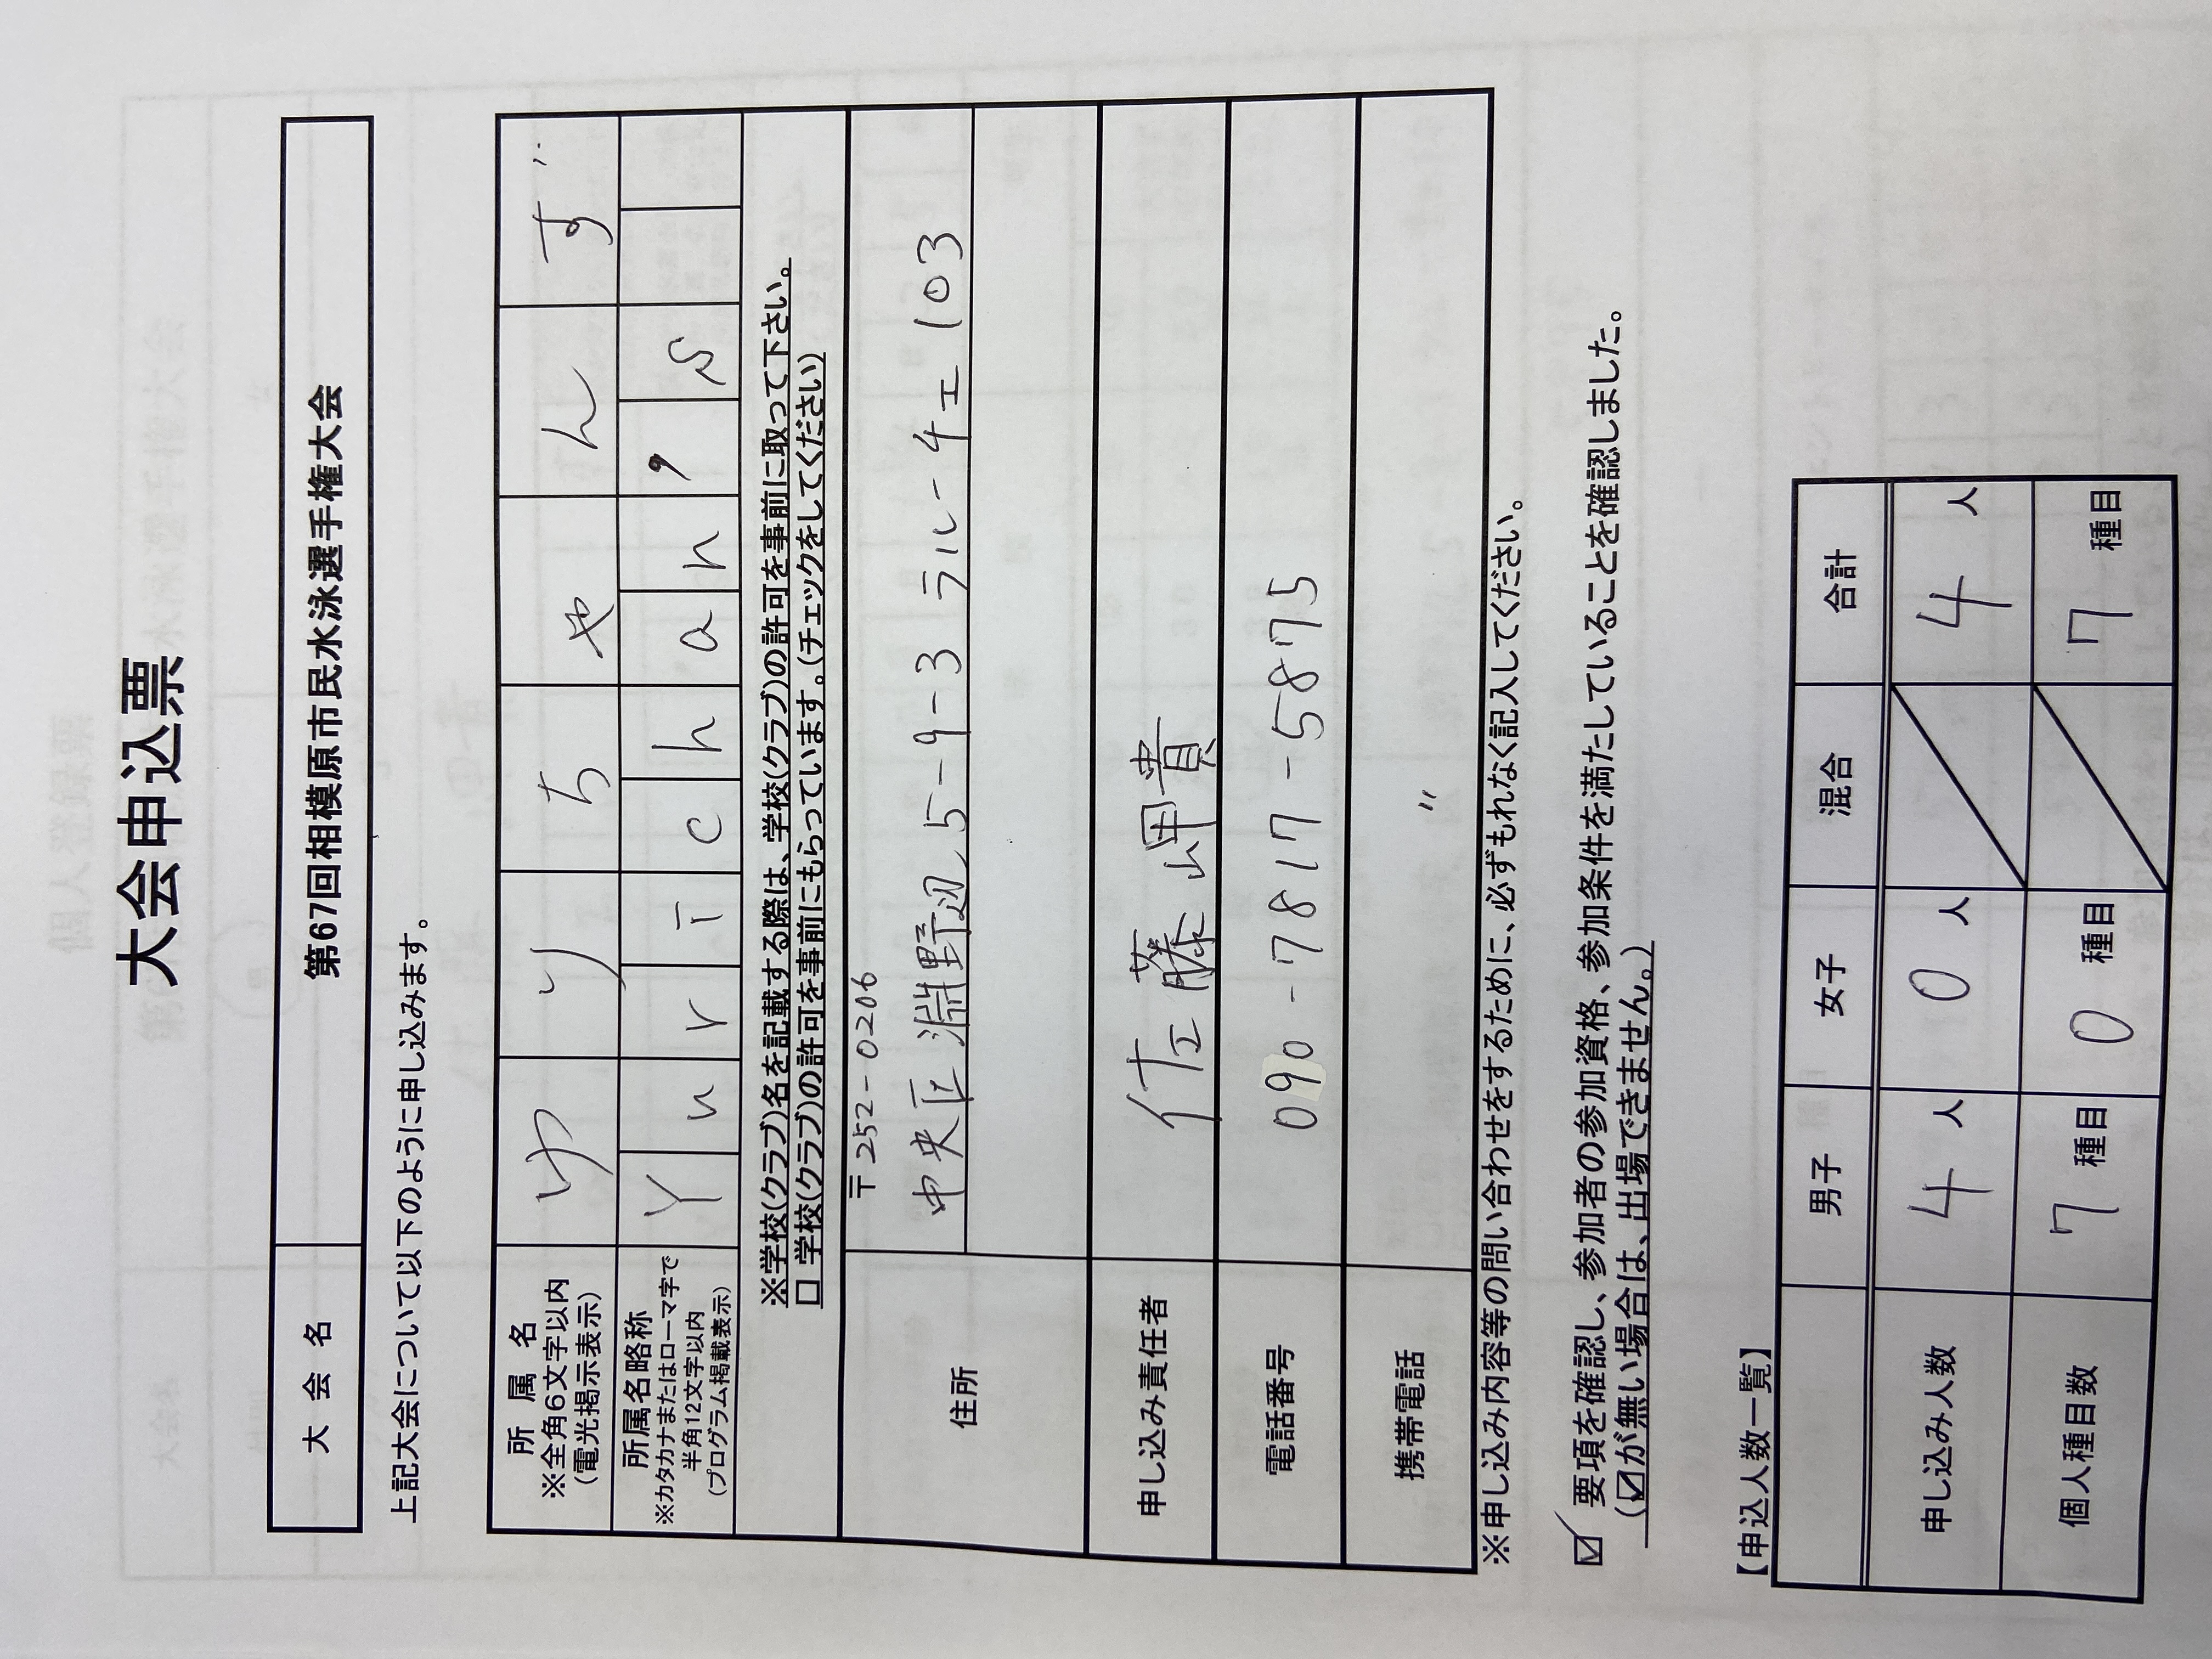 大会申込票
大会名 第67回相模原市民水泳選手権大会
上記大会について以下のように申し込みます。
所属名 ゆりちゃんず
※全角6文字以内
(電光掲示表示)
所属名略称 Yurichan's
※カタカナまたはローマ字で
半角12文字以内
(プログラム掲載表示)
※学校(クラブ)名を記載する際は、学校(クラブ)の許可を事前に取って下さい。
□ 学校(クラブ)の許可を事前にもらっています。(チェックをしてください)
〒252-0206
住所 中央区淵野辺5-9-3 ラルーチェ103
申し込み責任者 佐藤岬貴
電話番号 090-7817-5875
携帯電話 〃
※申し込み内容等の問い合わせをするために、必ずもれなく記入してください。
☑ 要項を確認し、参加者の参加資格、参加条件を満たしていることを確認しました。
(☑が無い場合は、出場できません。)
【申込人数一覧】
男子 女子 混合 合計
申し込み人数 4人 0人 4人
個人種目数 7種目 0種目 7種目